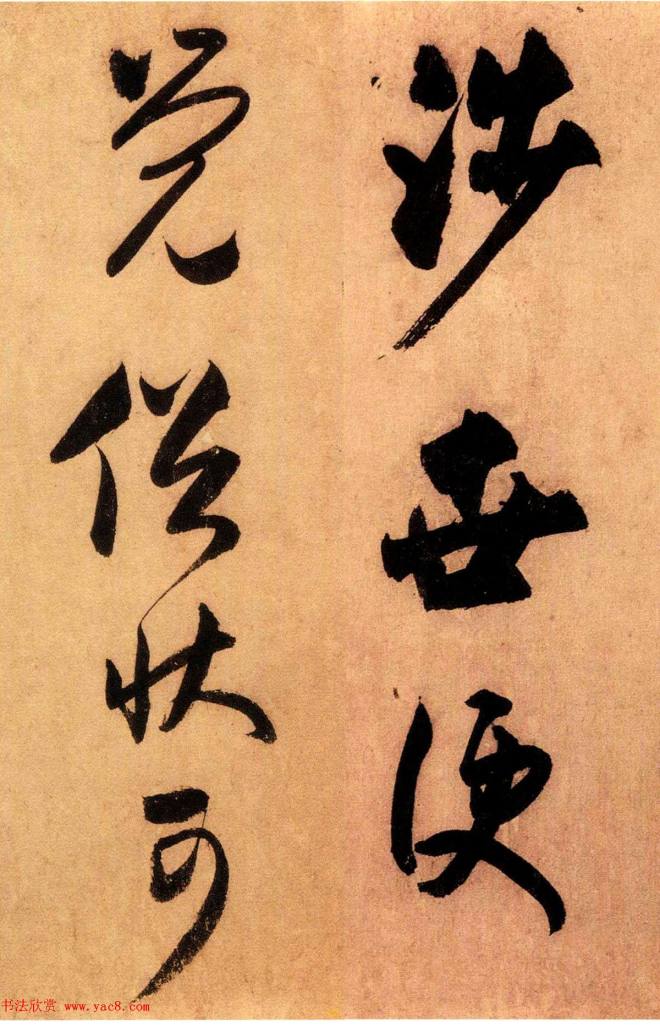 涉世便
覺俗狀可
书法欣赏 www.yac8.com